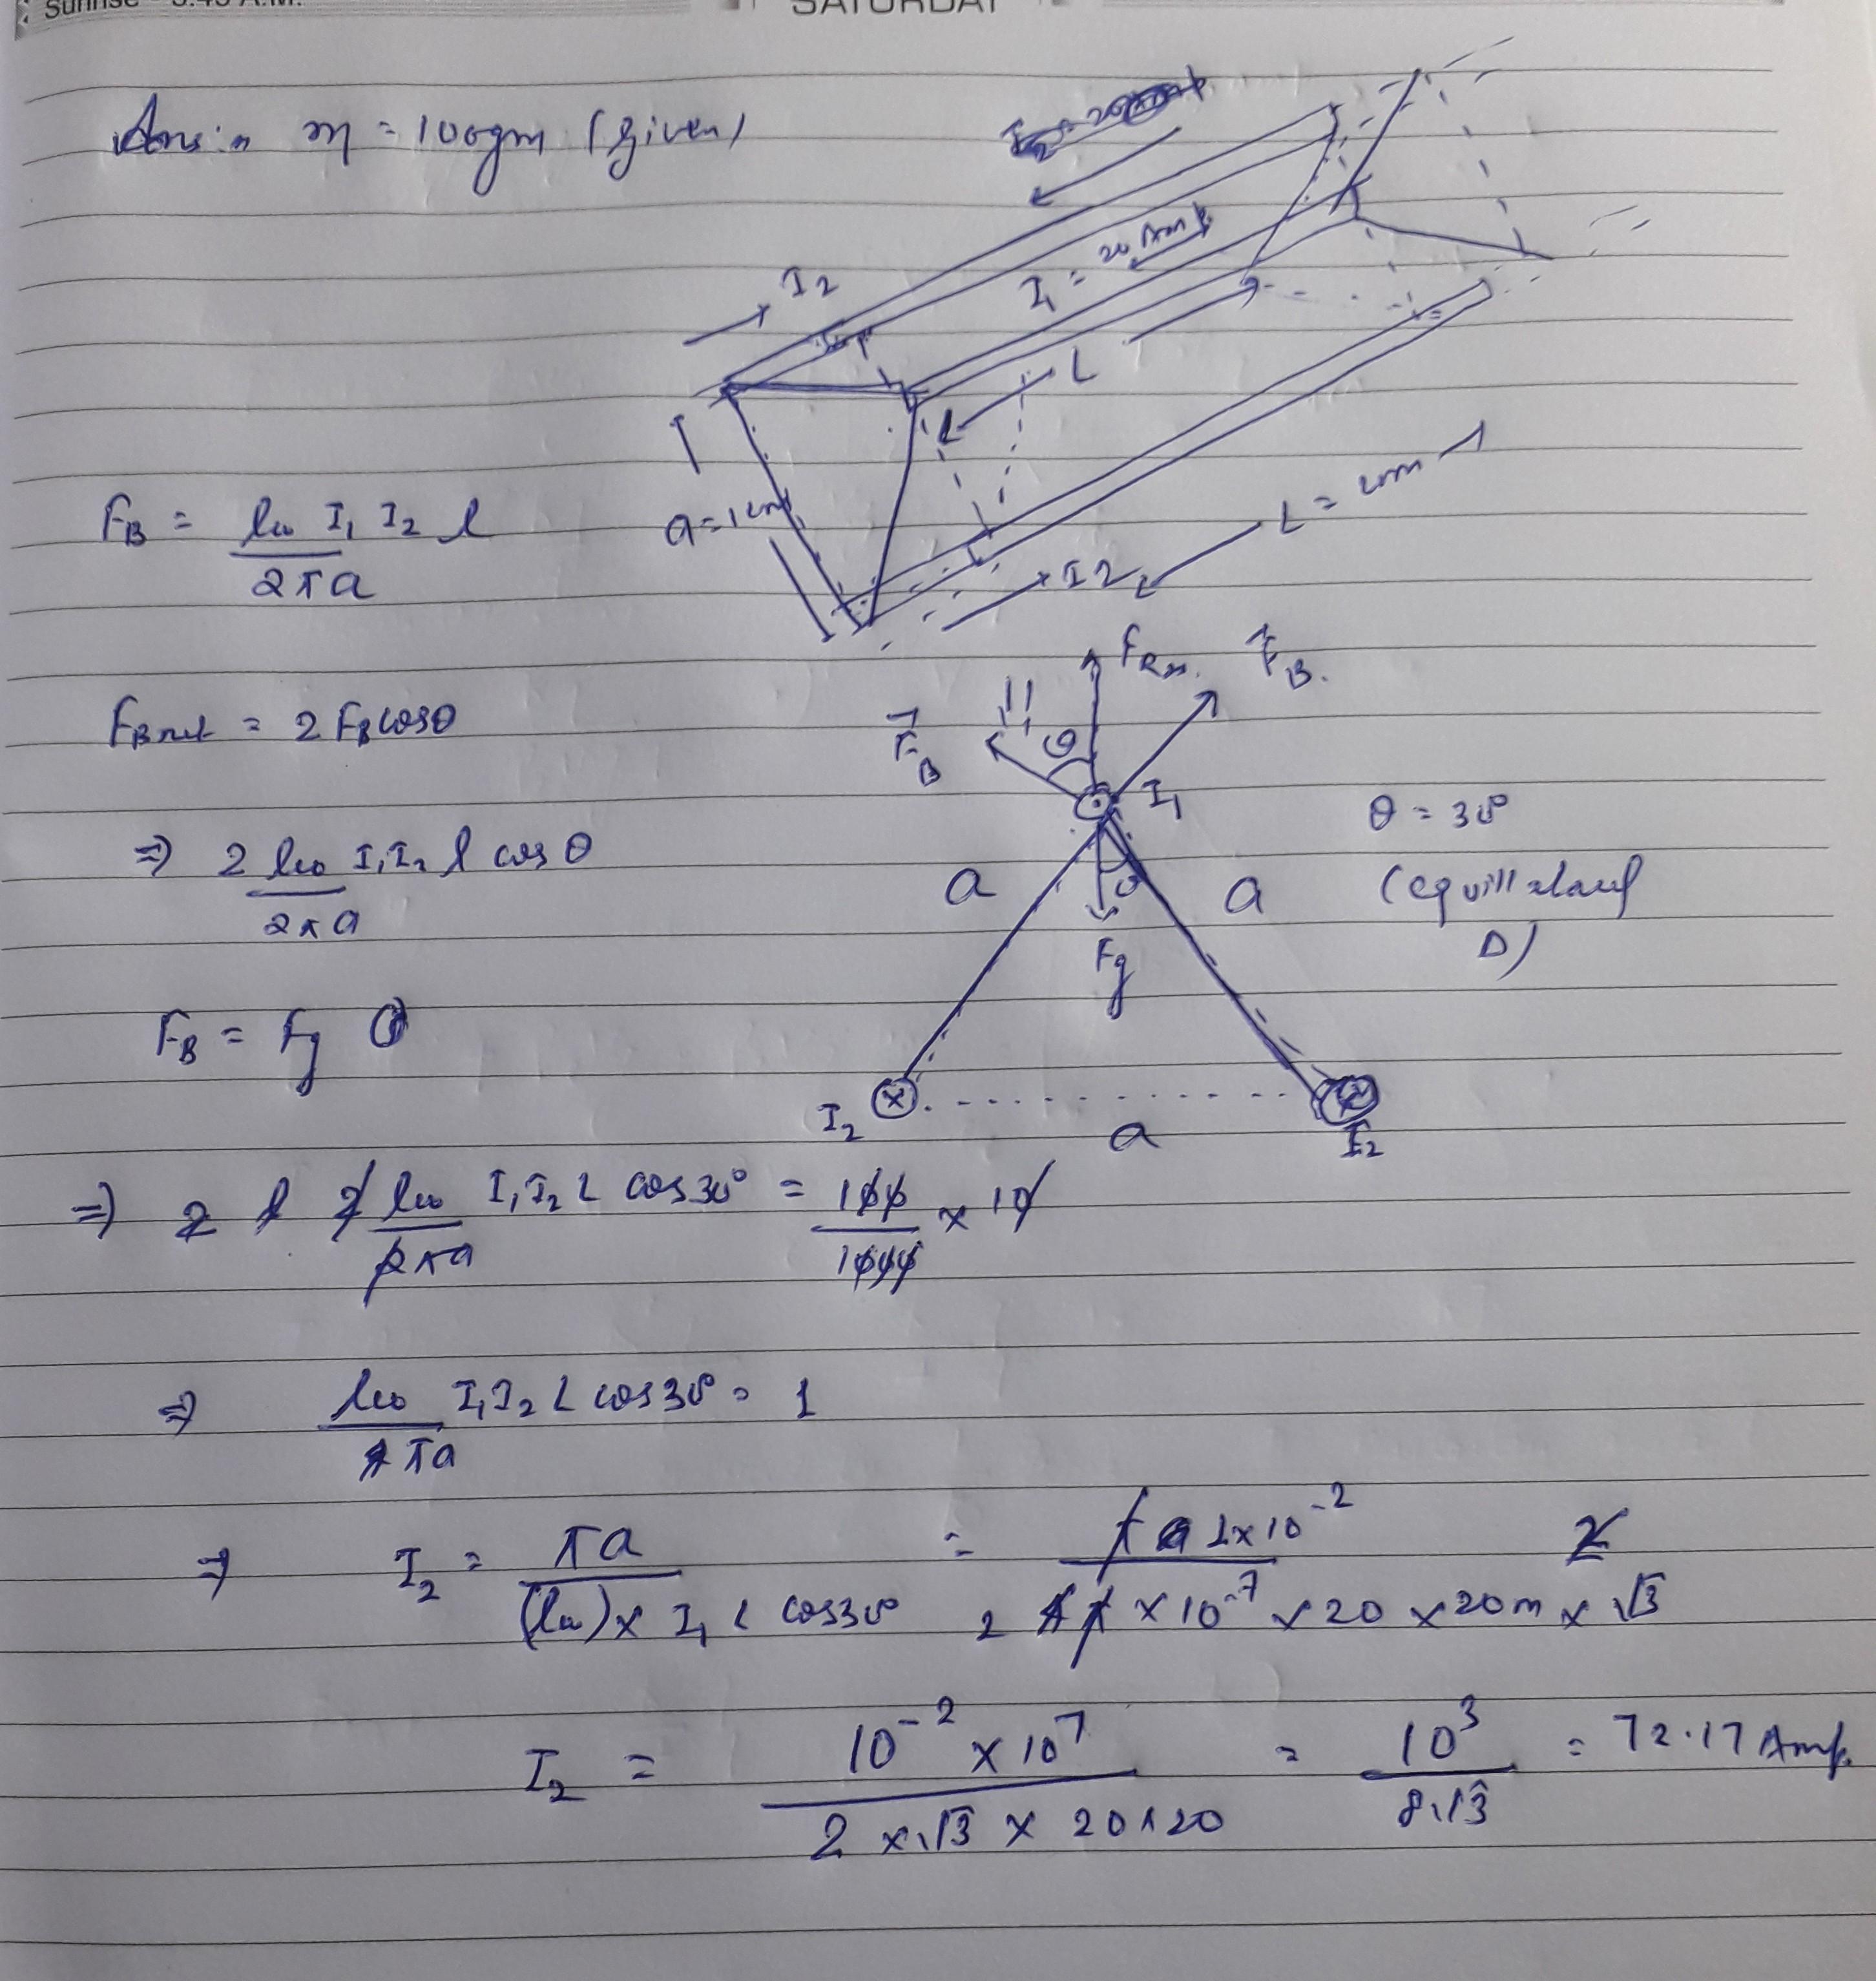 Sunrise - 5:45 A.M.
SATURDAY
Ans:- m = 100gm (given)
I₂
I₁ = 20 Amp
L
a = 1cm
L =
I2
F_B = μ₀ I₁ I₂ l / 2πa
F_B net = 2 F_B cosθ
F_B
F_B
θ
I₁
θ = 30°
⇒ 2 μ₀ I₁ I₂ l cos θ / 2πa
a
a
θ
Fg
F_B = Fg
I₂
a
I₂
⇒ 2 μ₀ I₁ I₂ L cos30° / 2πa = 100 / 1000 × 10
⇒ μ₀ I₁ I₂ L cos30° / πa = 1
⇒ I₂ = πa / (μ₀) × I₁ L cos30° = π 1×10⁻² 2 / 2 4π × 10⁻⁷ × 20 × 20m × √3
I₂ = 10⁻² × 10⁷ / 2 × √3 × 20 × 20 = 10³ / 8√3 = 72.17 Amp.